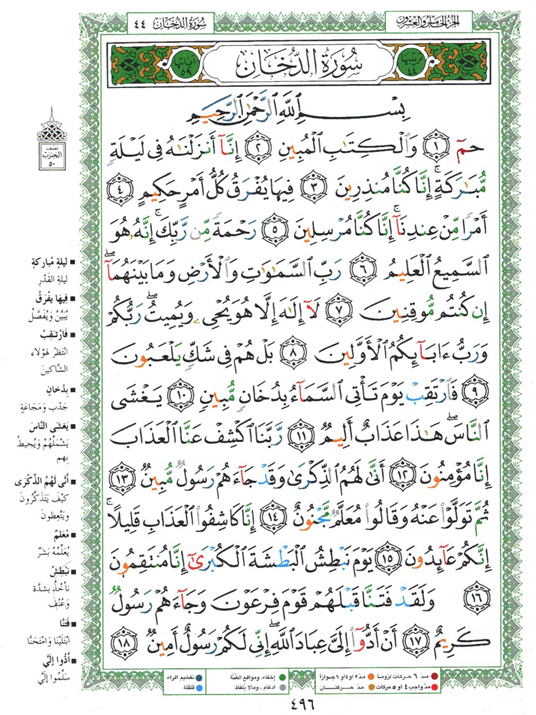 الجزء الخامس والعشرون
سُورَةُ الدُّخَان ٤٤
سُورَةُ الدُّخَان
بِسْمِ اللَّهِ الرَّحْمَٰنِ الرَّحِيمِ
حمٓ ١ وَالْكِتَابِ الْمُبِينِ ٢ إِنَّآ أَنزَلْنَاهُ فِي لَيْلَةٍ
مُّبَارَكَةٍ ۚ إِنَّا كُنَّا مُنذِرِينَ ٣ فِيهَا يُفْرَقُ كُلُّ أَمْرٍ حَكِيمٍ ٤
أَمْرًا مِّنْ عِندِنَآ ۚ إِنَّا كُنَّا مُرْسِلِينَ ٥ رَحْمَةً مِّن رَّبِّكَ ۚ إِنَّهُ هُوَ
السَّمِيعُ الْعَلِيمُ ٦ رَبِّ السَّمَاوَاتِ وَالْأَرْضِ وَمَا بَيْنَهُمَآ ۖ
إِن كُنتُم مُّوقِنِينَ ٧ لَآ إِلَٰهَ إِلَّا هُوَ يُحْيِي وَيُمِيتُ ۖ رَبُّكُمْ
وَرَبُّ ءَابَآئِكُمُ الْأَوَّلِينَ ٨ بَلْ هُمْ فِي شَكٍّ يَلْعَبُونَ
٩ فَارْتَقِبْ يَوْمَ تَأْتِي السَّمَآءُ بِدُخَانٍ مُّبِينٍ ١٠ يَغْشَى
النَّاسَ ۖ هَٰذَا عَذَابٌ أَلِيمٌ ١١ رَّبَّنَا اكْشِفْ عَنَّا الْعَذَابَ
إِنَّا مُؤْمِنُونَ ١٢ أَنَّىٰ لَهُمُ الذِّكْرَىٰ وَقَدْ جَآءَهُمْ رَسُولٌ مُّبِينٌ ١٣
ثُمَّ تَوَلَّوْا عَنْهُ وَقَالُوا مُعَلَّمٌ مَّجْنُونٌ ١٤ إِنَّا كَاشِفُوا الْعَذَابِ قَلِيلًا ۚ
إِنَّكُمْ عَآئِدُونَ ١٥ يَوْمَ نَبْطِشُ الْبَطْشَةَ الْكُبْرَىٰٓ إِنَّا مُنتَقِمُونَ
١٦ وَلَقَدْ فَتَنَّا قَبْلَهُمْ قَوْمَ فِرْعَوْنَ وَجَآءَهُمْ رَسُولٌ
كَرِيمٌ ١٧ أَنْ أَدُّوٓا إِلَيَّ عِبَادَ اللَّهِ ۖ إِنِّي لَكُمْ رَسُولٌ أَمِينٌ ١٨
نصف
الحزب
٥٠
ليلةٍ مُباركةٍ
ليلةِ القَدْرِ
فِيهَا يُفْرَقُ
يُبَيَّنُ وَيُفَصَّلُ
فَارْتَقِبْ
انْتَظِرْ هَؤُلاءِ
الشَّاكِينَ
بِدُخَانٍ
جَدْبٍ وَمَجَاعَةٍ
يَغْشَى النَّاسَ
يَشْمَلُهُمْ وَيُحِيطُ
بِهِم
أَنَّى لَهُمُ الذِّكْرَى
كَيْفَ يَتَذَكَّرُونَ
وَيَتَّعِظُونَ
مُعَلَّمٌ
يُعَلِّمُهُ بَشَرٌ
نَبْطِشُ
نَأْخُذُ بِشِدَّةٍ
وَعُنْفٍ
فَتَنَّا
ابْتَلَيْنَا وَامْتَحَنَّا
أَدُّوا إِلَيَّ
سَلِّمُوا إِلَيَّ
مدّ ٦ حركات لزوماً مدّ ٢ أو ٤ أو ٦ جوازاً
مدّ واجب ٤ أو ٥ حركات مدّ حركتان
إخفاء، ومواقع الغُنَّة
ادغام، ومالا يُلفظ
تفخيم الراء
قلقلة
٤٩٦